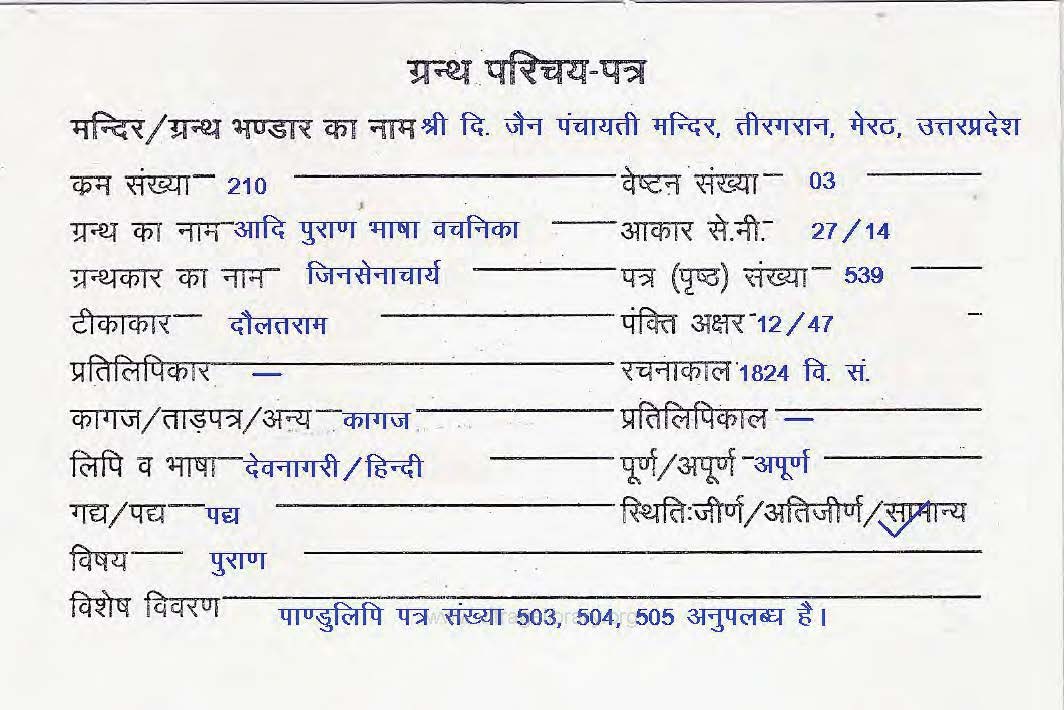 ग्रन्थ परिचय-पत्र
मन्दिर/ग्रन्थ भण्डार का नाम श्री दि. जैन पंचायती मन्दिर, तीरगरान, मेरठ, उत्तरप्रदेश
क्रम संख्या 210 वेष्टन संख्या 03
ग्रन्थ का नाम आदि पुराण भाषा वचनिका आकार से.मी. 27/14
ग्रन्थकार का नाम जिनसेनाचार्य पत्र (पृष्ठ) संख्या 539
टीकाकार दौलतराम पंक्ति अक्षर 12/47
प्रतिलिपिकार — रचनाकाल 1824 वि. सं.
कागज/ताड़पत्र/अन्य कागज प्रतिलिपिकाल —
लिपि व भाषा देवनागरी/हिन्दी पूर्ण/अपूर्ण अपूर्ण
गद्य/पद्य पद्य स्थिति:जीर्ण/अतिजीर्ण/सामान्य
विषय पुराण
विशेष विवरण पाण्डुलिपि पत्र संख्या 503, 504, 505 अनुपलब्ध है।